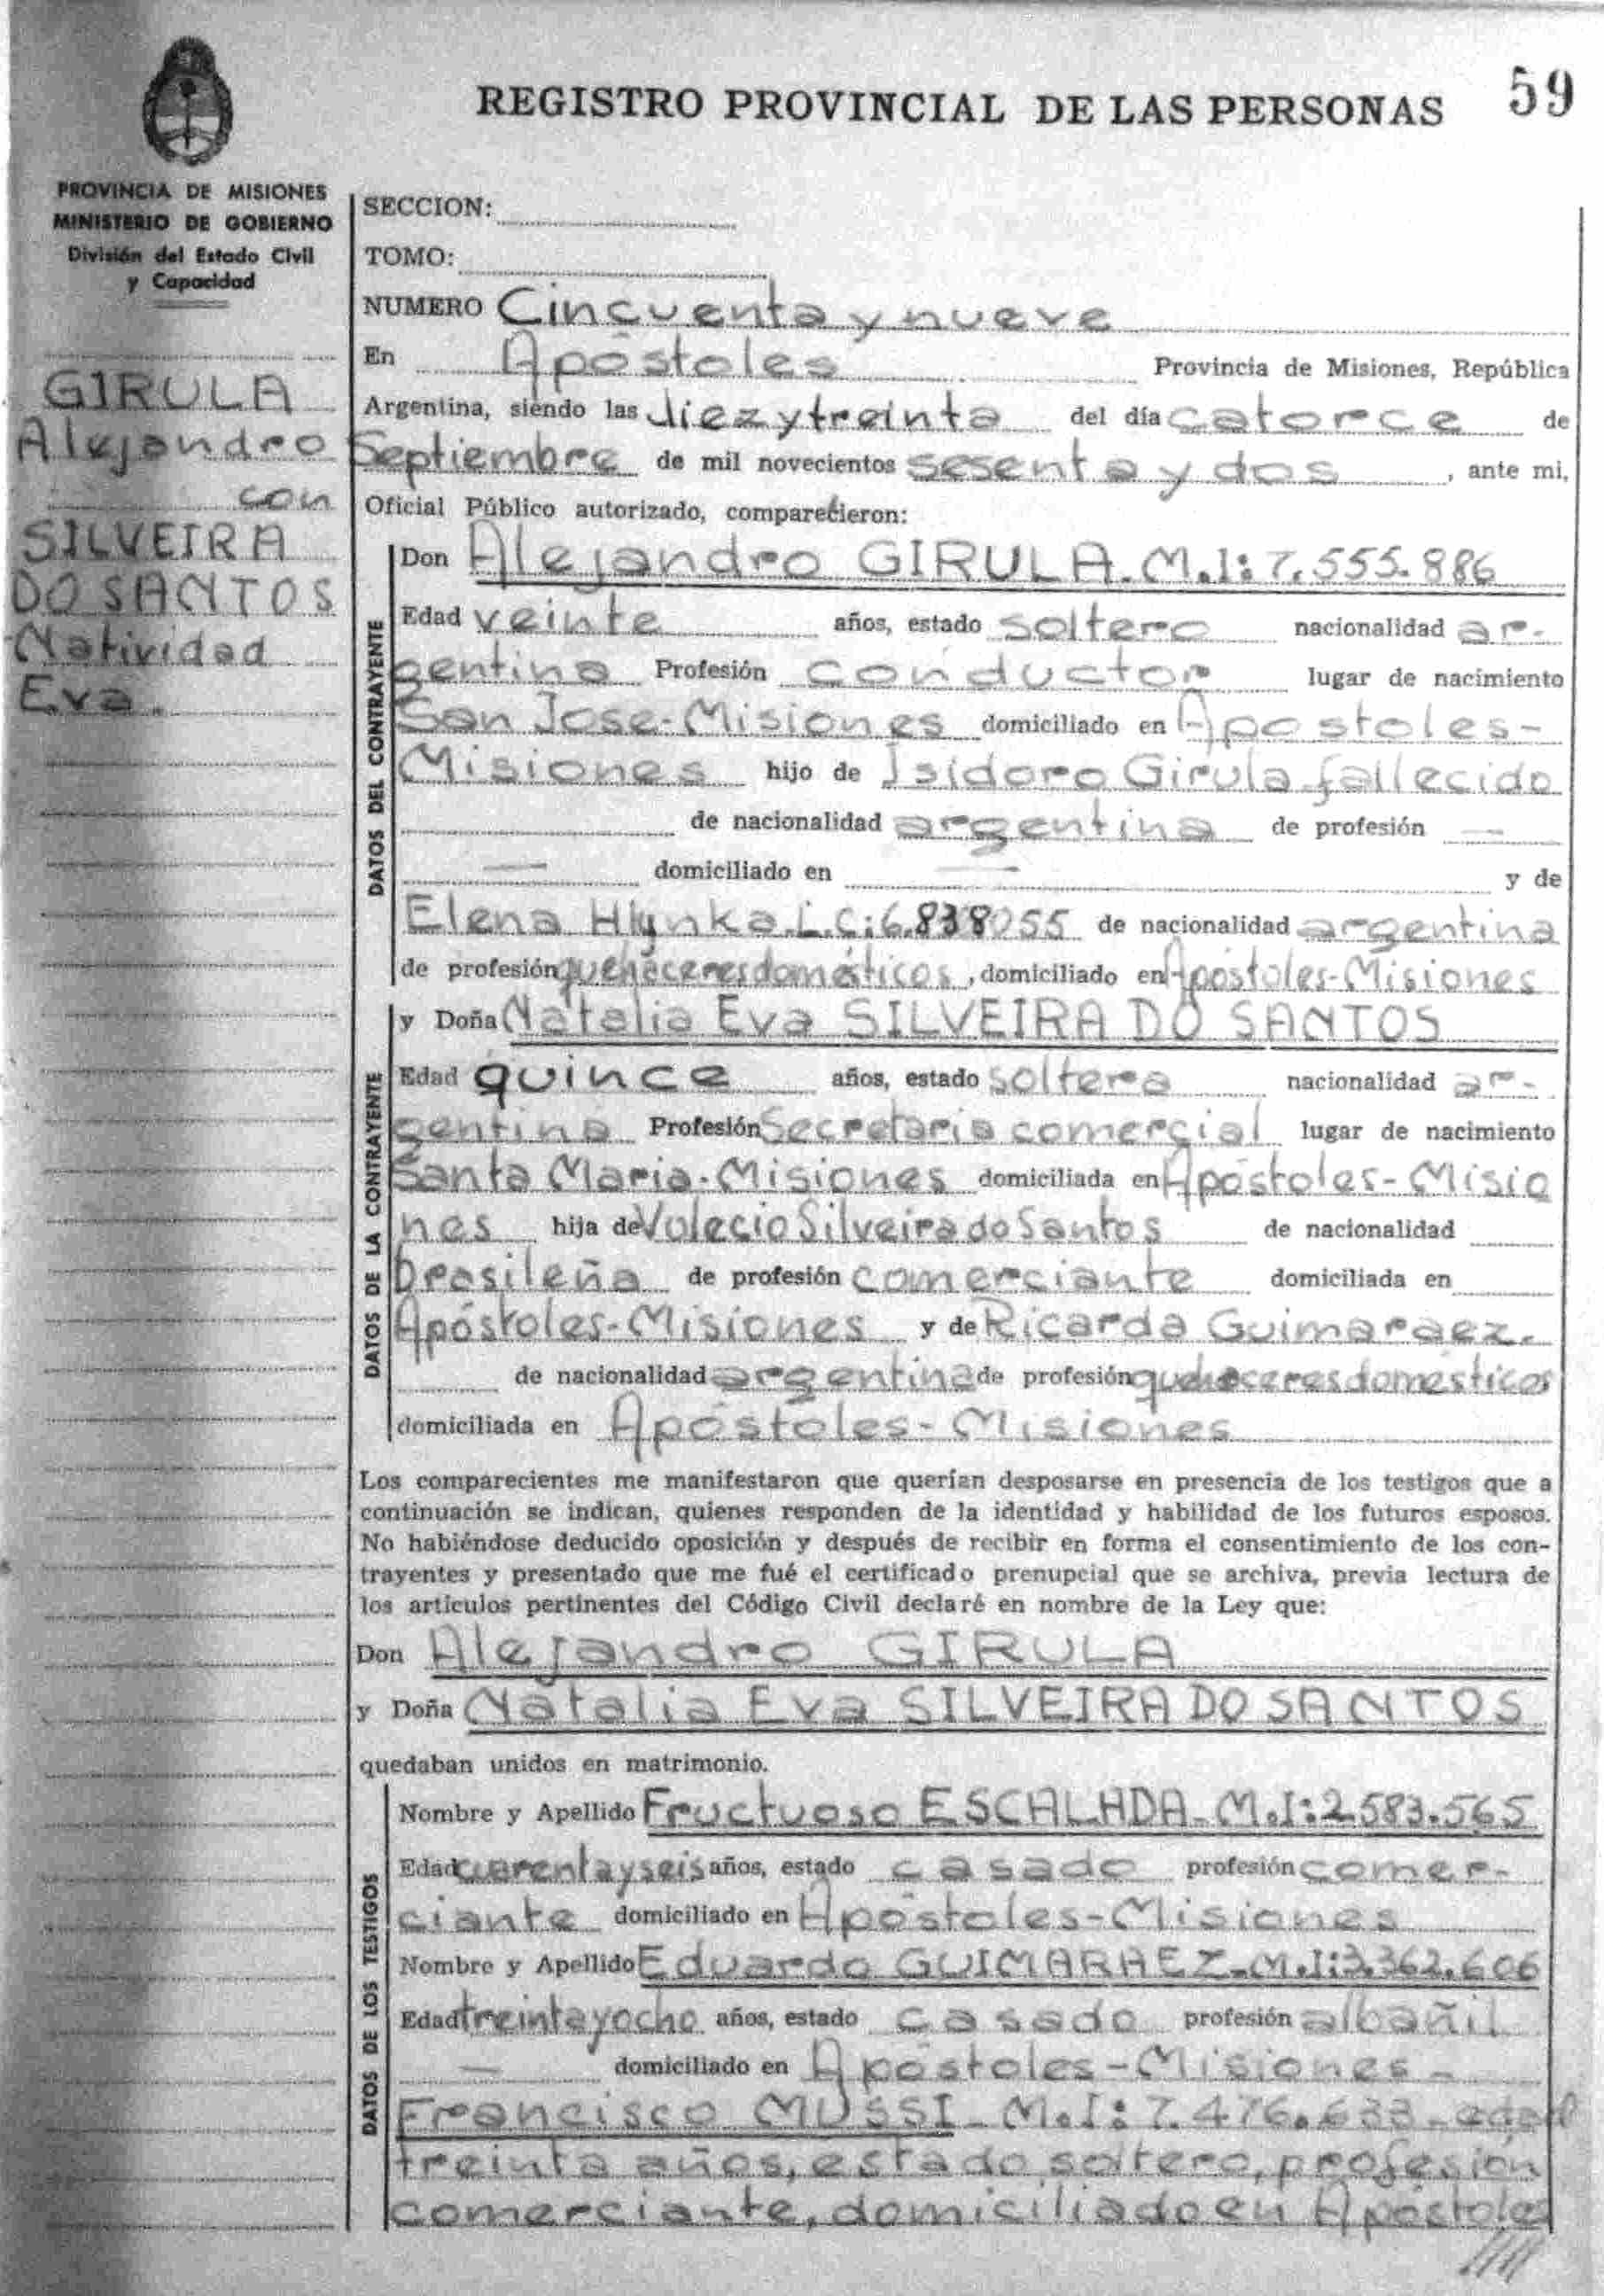 REGISTRO PROVINCIAL DE LAS PERSONAS 59
PROVINCIA DE MISIONES
MINISTERIO DE GOBIERNO
División del Estado Civil
y Capacidad
GIRULA
Alejandro
con
SILVEIRA
DO SANTOS
Natividad
Eva.
SECCION:
TOMO:
NUMERO Cincuenta y nueve
En Apóstoles Provincia de Misiones, República
Argentina, siendo las diez y treinta del día catorce de
Septiembre de mil novecientos sesenta y dos, ante mi,
Oficial Público autorizado, comparecieron:
DATOS DEL CONTRAYENTE
Don Alejandro GIRULA. M.I: 7.555.886
Edad veinte años, estado soltero nacionalidad ar-
gentina Profesión conductor lugar de nacimiento
San Jose-Misiones domiciliado en Apostoles-
Misiones hijo de Isidoro Girula fallecido
de nacionalidad argentina de profesión —
— domiciliado en — y de
Elena Hlynka.L.C:6.838055 de nacionalidad argentina
de profesión quehaceres domésticos, domiciliado en Apóstoles-Misiones
DATOS DE LA CONTRAYENTE
y Doña Natalia Eva SILVEIRA DO SANTOS
Edad quince años, estado soltera nacionalidad ar-
gentina Profesión Secretaria comercial lugar de nacimiento
Santa Maria-Misiones domiciliada en Apóstoles-Misio
nes hija de Volecio Silveira do Santos de nacionalidad
brasileña de profesión comerciante domiciliada en
Apóstoles-Misiones y de Ricarda Guimaraez.
de nacionalidad argentina de profesión quehaceres domésticos
domiciliada en Apóstoles-Misiones
Los comparecientes me manifestaron que querían desposarse en presencia de los testigos que a
continuación se indican, quienes responden de la identidad y habilidad de los futuros esposos.
No habiéndose deducido oposición y después de recibir en forma el consentimiento de los con-
trayentes y presentado que me fué el certificado prenupcial que se archiva, previa lectura de
los artículos pertinentes del Código Civil declaré en nombre de la Ley que:
Don Alejandro GIRULA
y Doña Natalia Eva SILVEIRA DO SANTOS
quedaban unidos en matrimonio.
DATOS DE LOS TESTIGOS
Nombre y Apellido Fructuoso ESCALADA-M.I:2583.565
Edad cuarenta y seis años, estado casado profesión comer-
ciante domiciliado en Apóstoles-Misiones
Nombre y Apellido Eduardo GUIMARAEZ-M.I:3.362.606
Edad treinta y ocho años, estado casado profesión albañil
— domiciliado en Apóstoles-Misiones-
Francisco MUSSI-M.I: 7.476.633-edad
treinta años, estado soltero, profesión
comerciante, domiciliado en Apóstoles